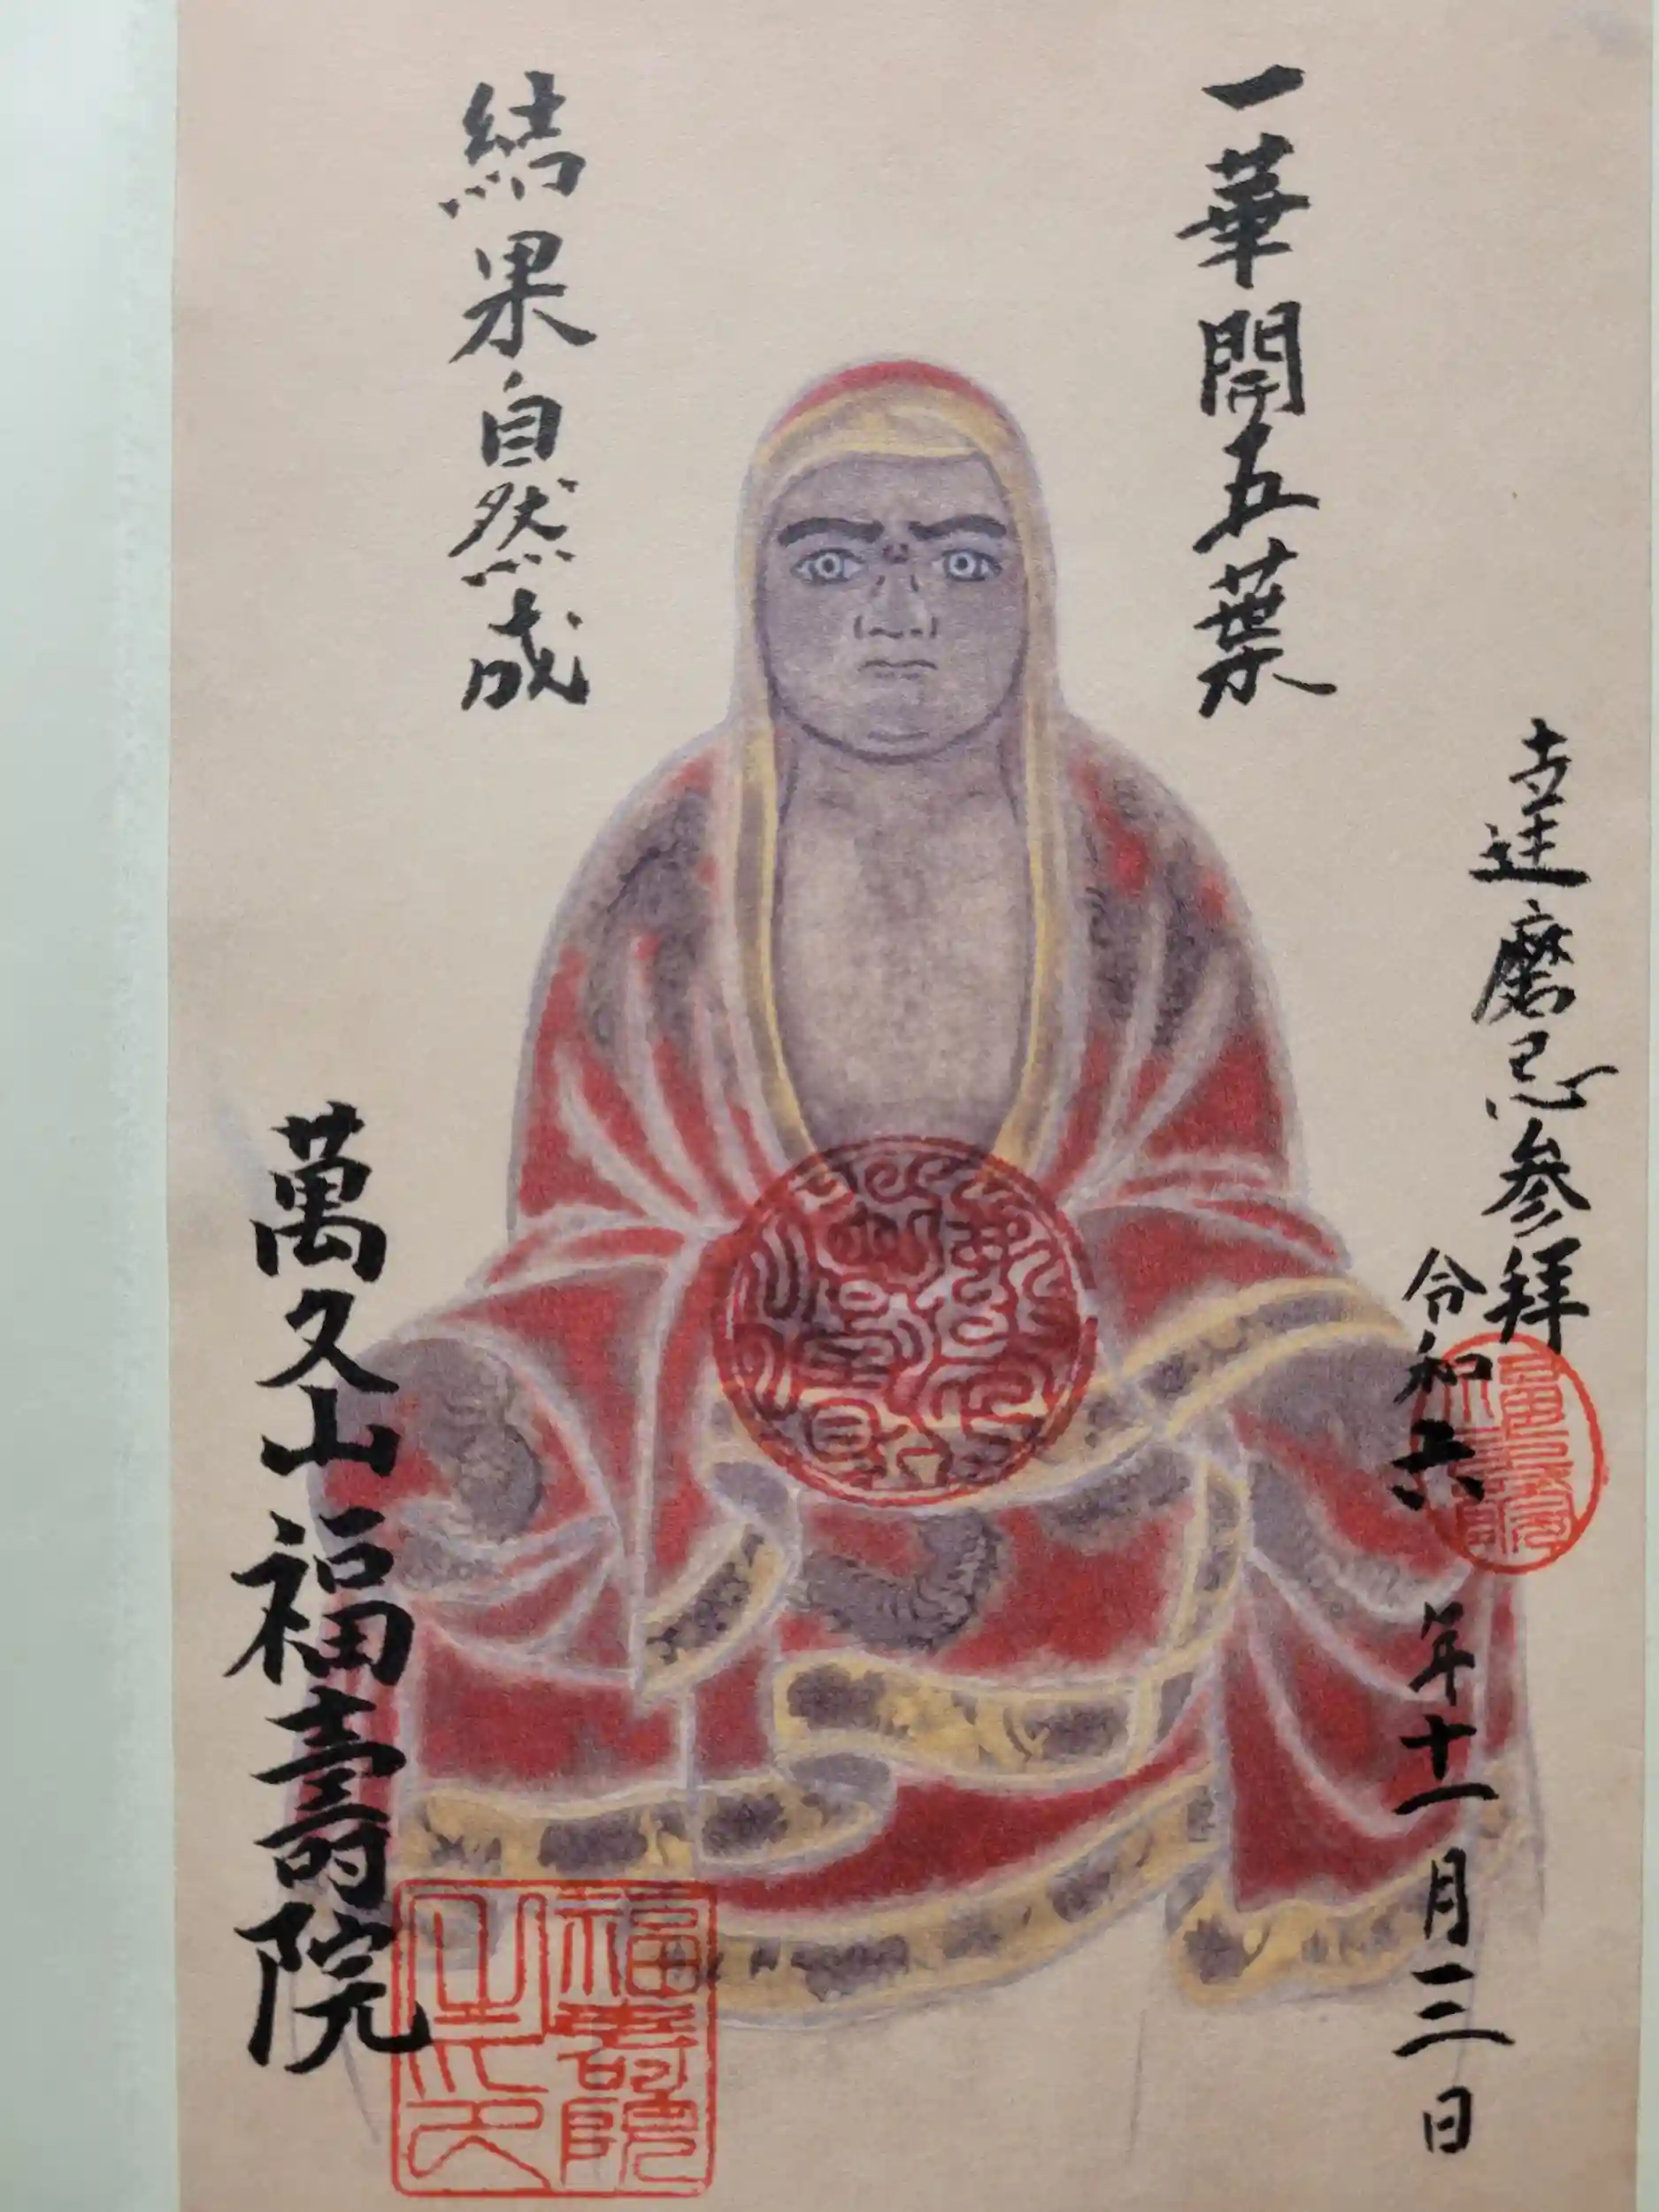 一華開五葉
結果自然成
達磨忌参拝
令和六年十一月三日
萬久山福壽院
福壽院